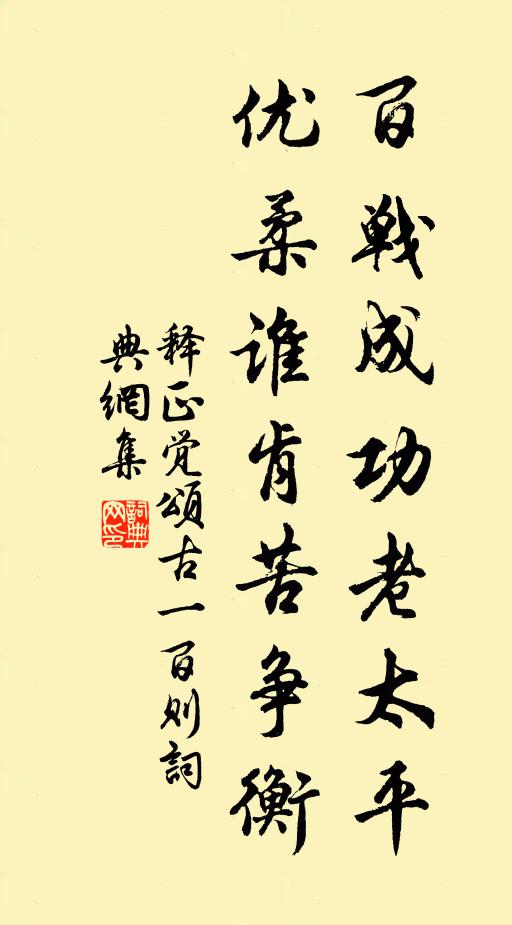 百戦成功老太平
优柔谁肯苦争衡
释正觉颂古一百则詞
典網集
詞典
网印